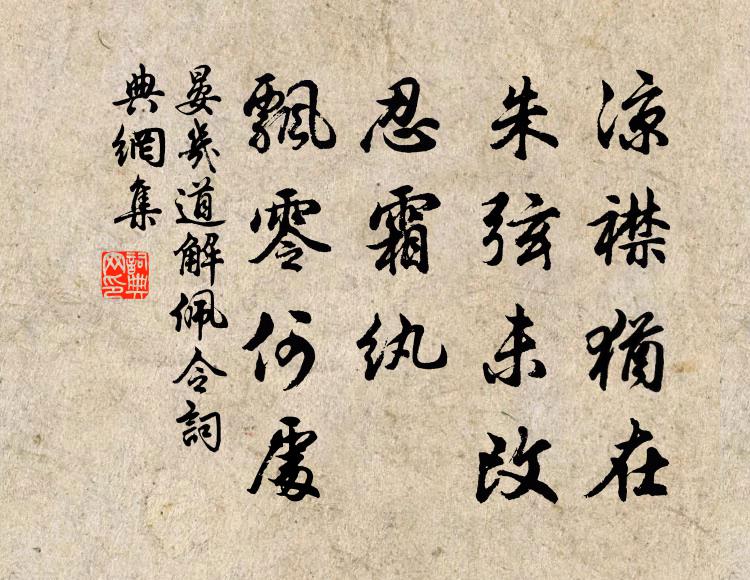 涼襟猶在
朱弦未改
忍霜紈
飄零何處
晏幾道解佩令詞
典網集
詞典網印